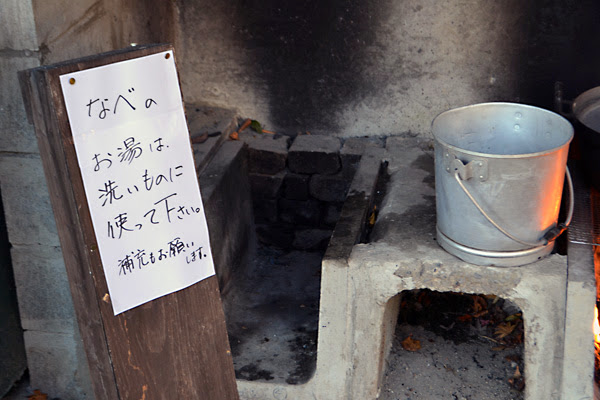 なべの
お湯は、
洗いものに
使って下さい。
補充もお願いします。